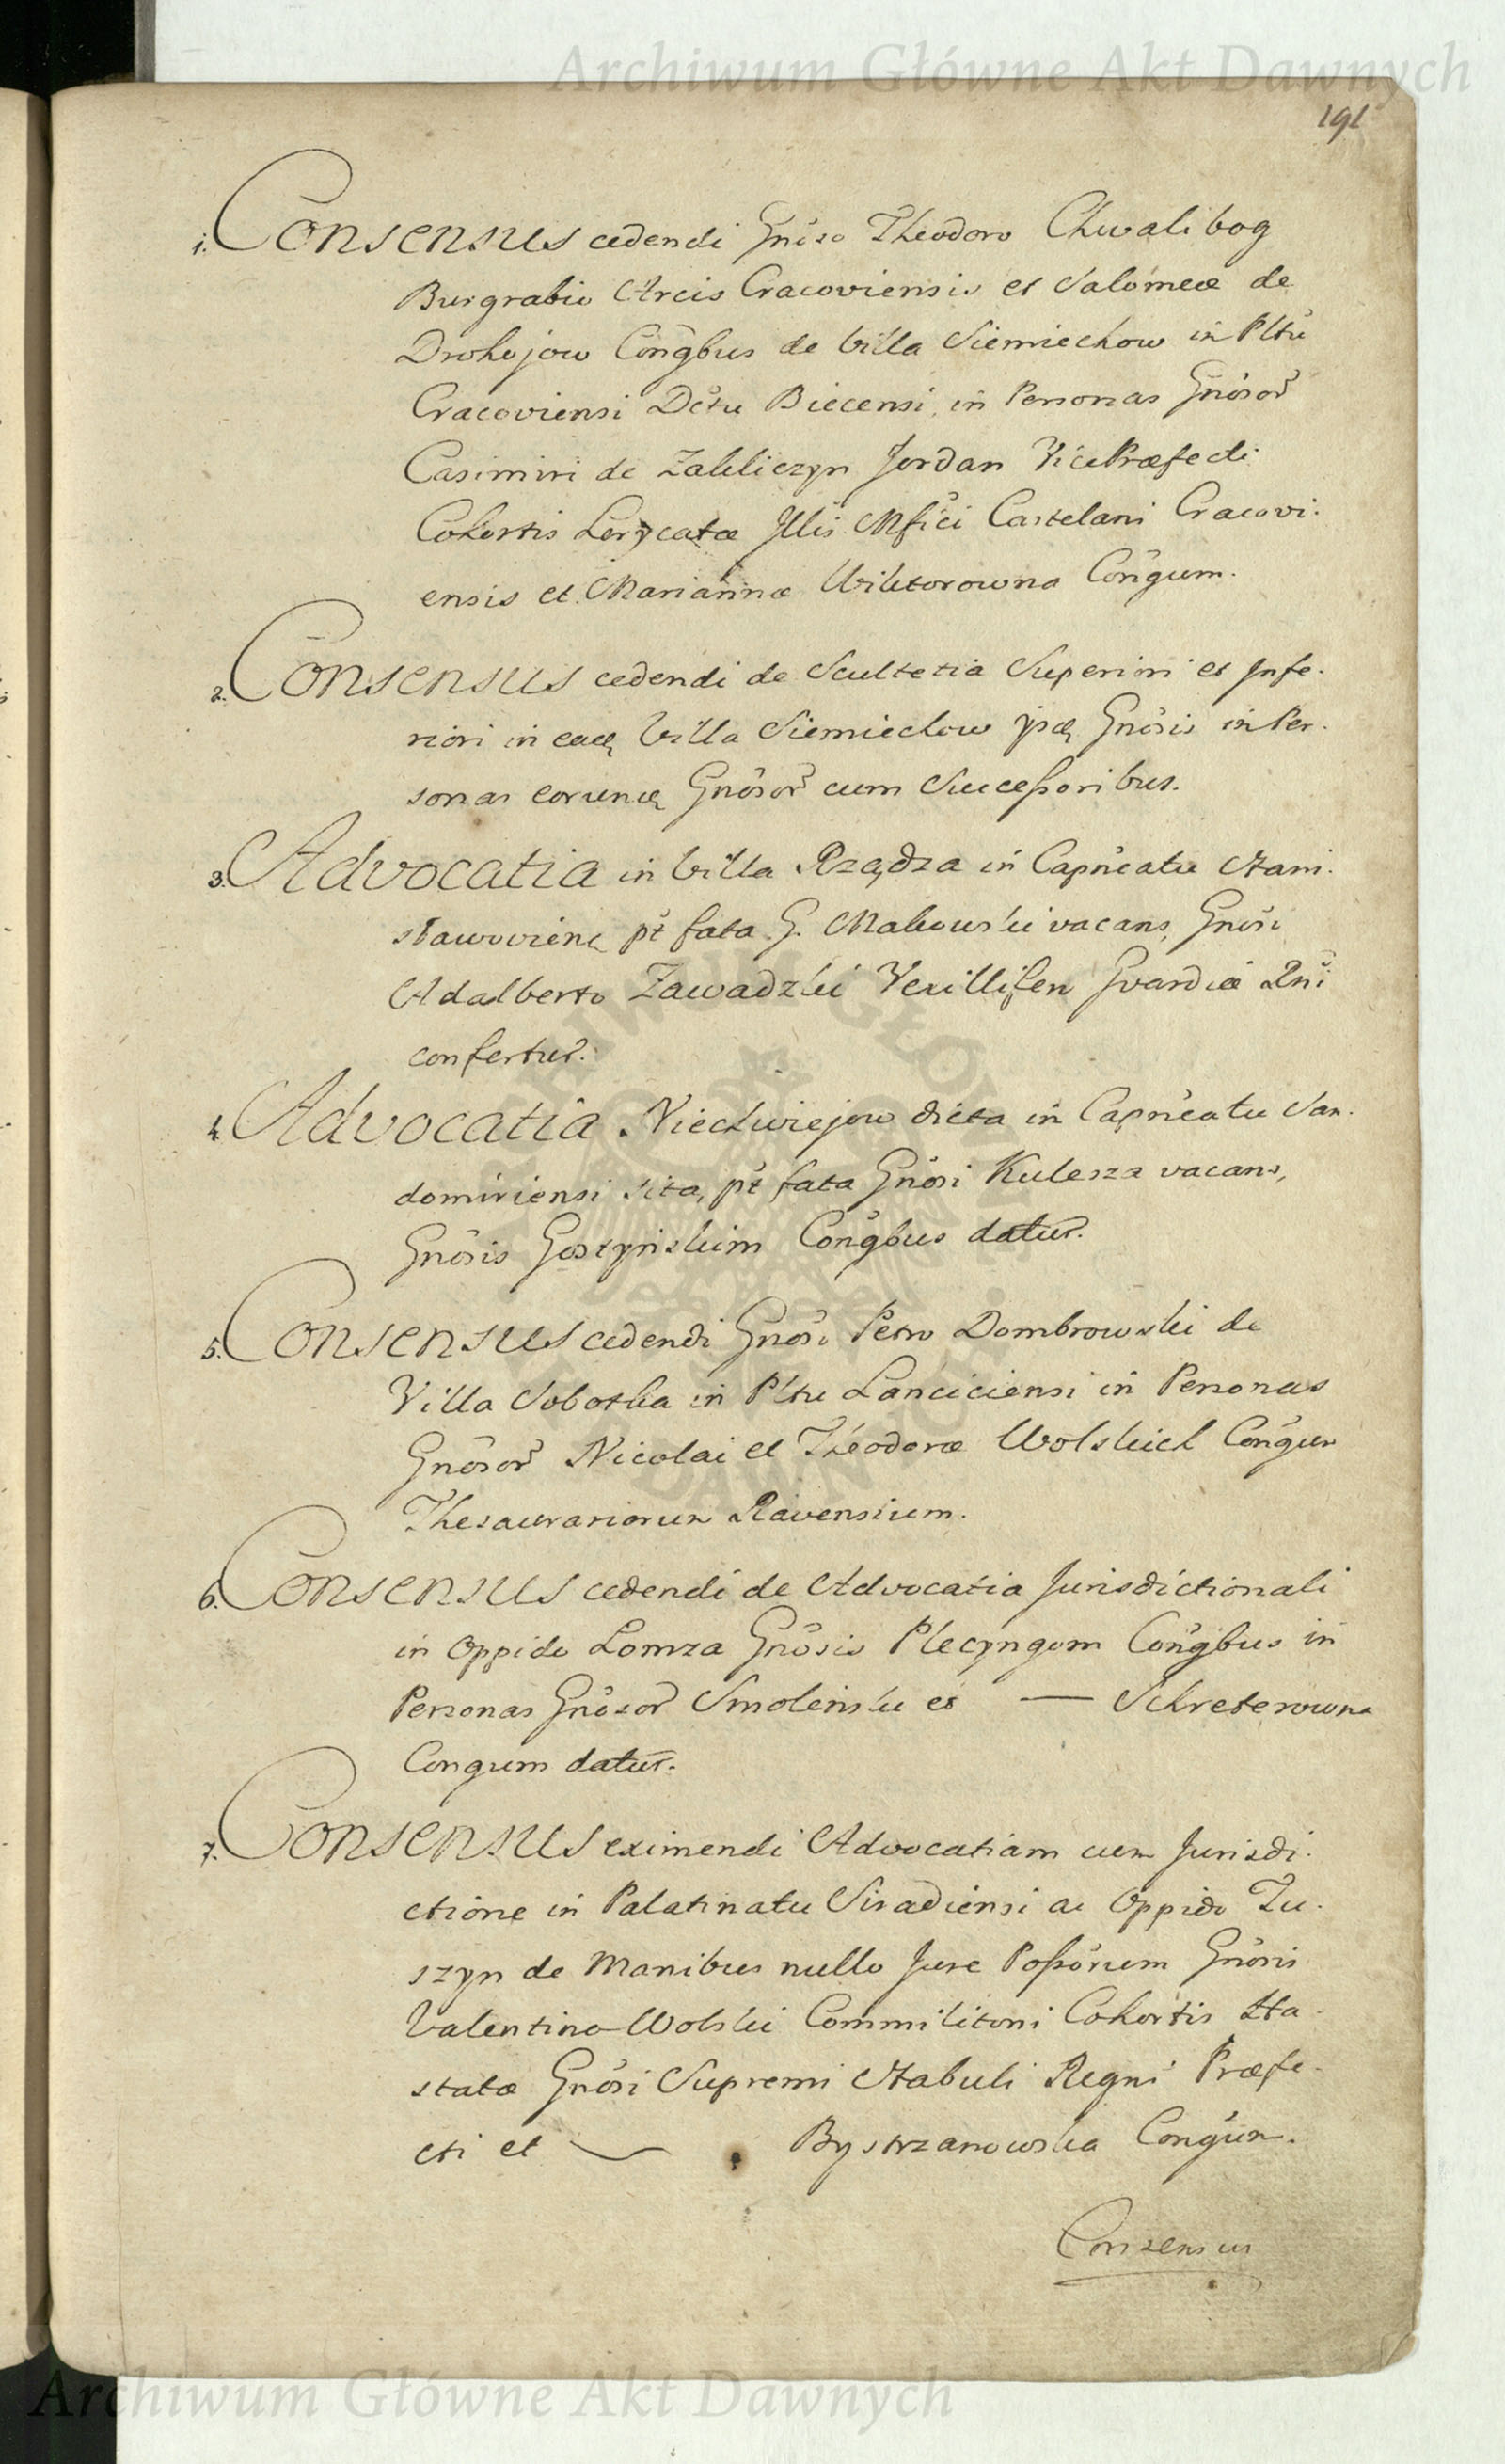 Archiwum Główne Akt Dawnych
191
1. Consensus cedendi Gnôso Theodoro Chwalibog
Burgrabio Arcis Cracoviensis et Salomeæ de
Drohojow Congbus de Villa Siemiechow in Pltu
Cracoviensi Dctu Biecensi, in Personas Gnôsor
Casimiri de Zakliczyn Jordan VicePræfecti
Cohortis Lorycatæ Illis Mfici Castelani Cracovi.
ensis et Mariannæ Wiktorowna Congum.
2. Consensus cedendi de Scultetia Superiori et Infe.
riori in eadę Villa Siemiechow Gnôsis in Per.
sonas eorundę Gnôsor cum Successoribus.
3. Advocatia in Villa Rządza in Capneatu Stani.
sławoviens pt fata G. Makowski vacans, Gnôso
Adalberto Zawadzki Vexillifero Gvardiæ Rni
confertur.
4. Advocatia Niechwiejow dicta in Capneatu San.
domiriensi sita, pt fata Gnôsi Kulesza vacans,
Gnôsis Goszynskim Congbus datur.
5. Consensus cedendi Gnôso Petro Dombrowski de
Villa Sobotka in Pltu Lanciciensi in Personas
Gnôsor Nicolai et Theodoræ Wolskich Congum
Thesaurariorum Ravensium.
6. Consensus cedendi de Advocatia Jurisdictionali
in Oppido Lomza Gnôsis Plecyngom Congbus in
Personas Gnôsor Smolenski et — Schreterowna
Congum datur.
7. Consensus eximendi Advocatiam cum Jurisdi.
ctione in Palatinatu Siradiensi ac Oppido Tu.
szyn de Manibus nullo Jure Possôrum Gnôsis
Valentino Wolski Commilitoni Cohortis Ha.
statæ Gnôsi Supremi Stabuli Regni Præfe.
cti et — Bystrzanowska Congum.
Consensus
Archiwum Główne Akt Dawnych